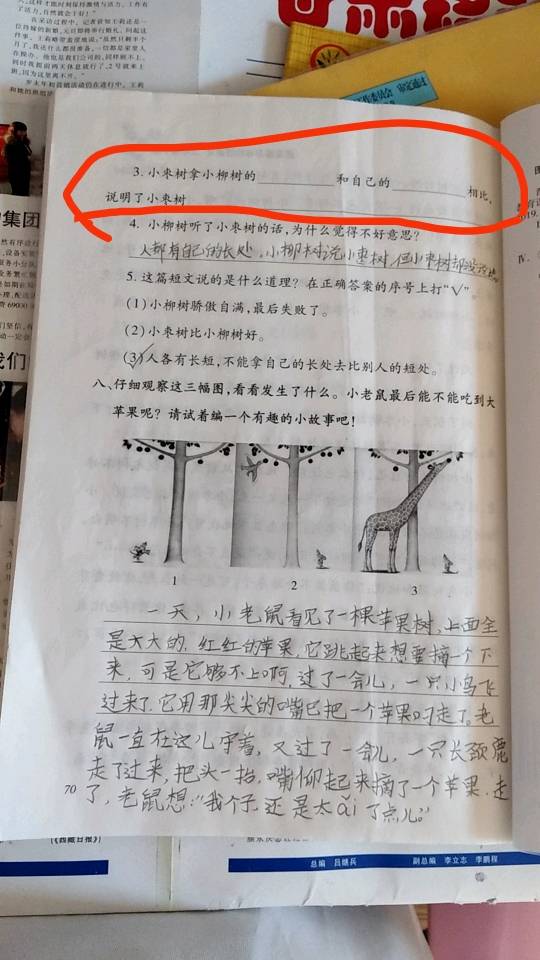 人,这样才能时刻保持激情与活力,工作有
了活力,自然就会干好!"
3.小枣树拿小柳树的____________和自己的____________相比,
说明了小枣树
4.小柳树听了小枣树的话,为什么觉得不好意思?
人都有自己的长处,小柳树说小枣树,但小枣树却没说
5.这篇短文说的是什么道理?在正确答案的序号上打"√"。
(1)小柳树骄傲自满,最后失败了。
(2)小枣树比小柳树好。
(3)人各有长短,不能拿自己的长处去比别人的短处。
八、仔细观察这三幅图,看看发生了什么。小老鼠最后能不能吃到大
苹果呢?请试着编一个有趣的小故事吧!
1
2
3
一天,小老鼠看见了一棵苹果树,上面全
是大大的,红红的苹果,它跳起来想要摘一个下
来,可是它够不上啊,过了一会儿,一只小鸟飞
过来了,它用那尖尖的嘴巴把一个苹果叼走了。老
鼠一直在这儿守着,又过了一会儿,一只长颈鹿
走了过来,把头一抬,嘴仰起来摘了一个苹果,走
了,老鼠想:"我个子还是太ǎi了点儿。"
70
集团
我们
审定通过
(《西藏日报》)
总编 吕继兵
副总编 李立志 李鹏程